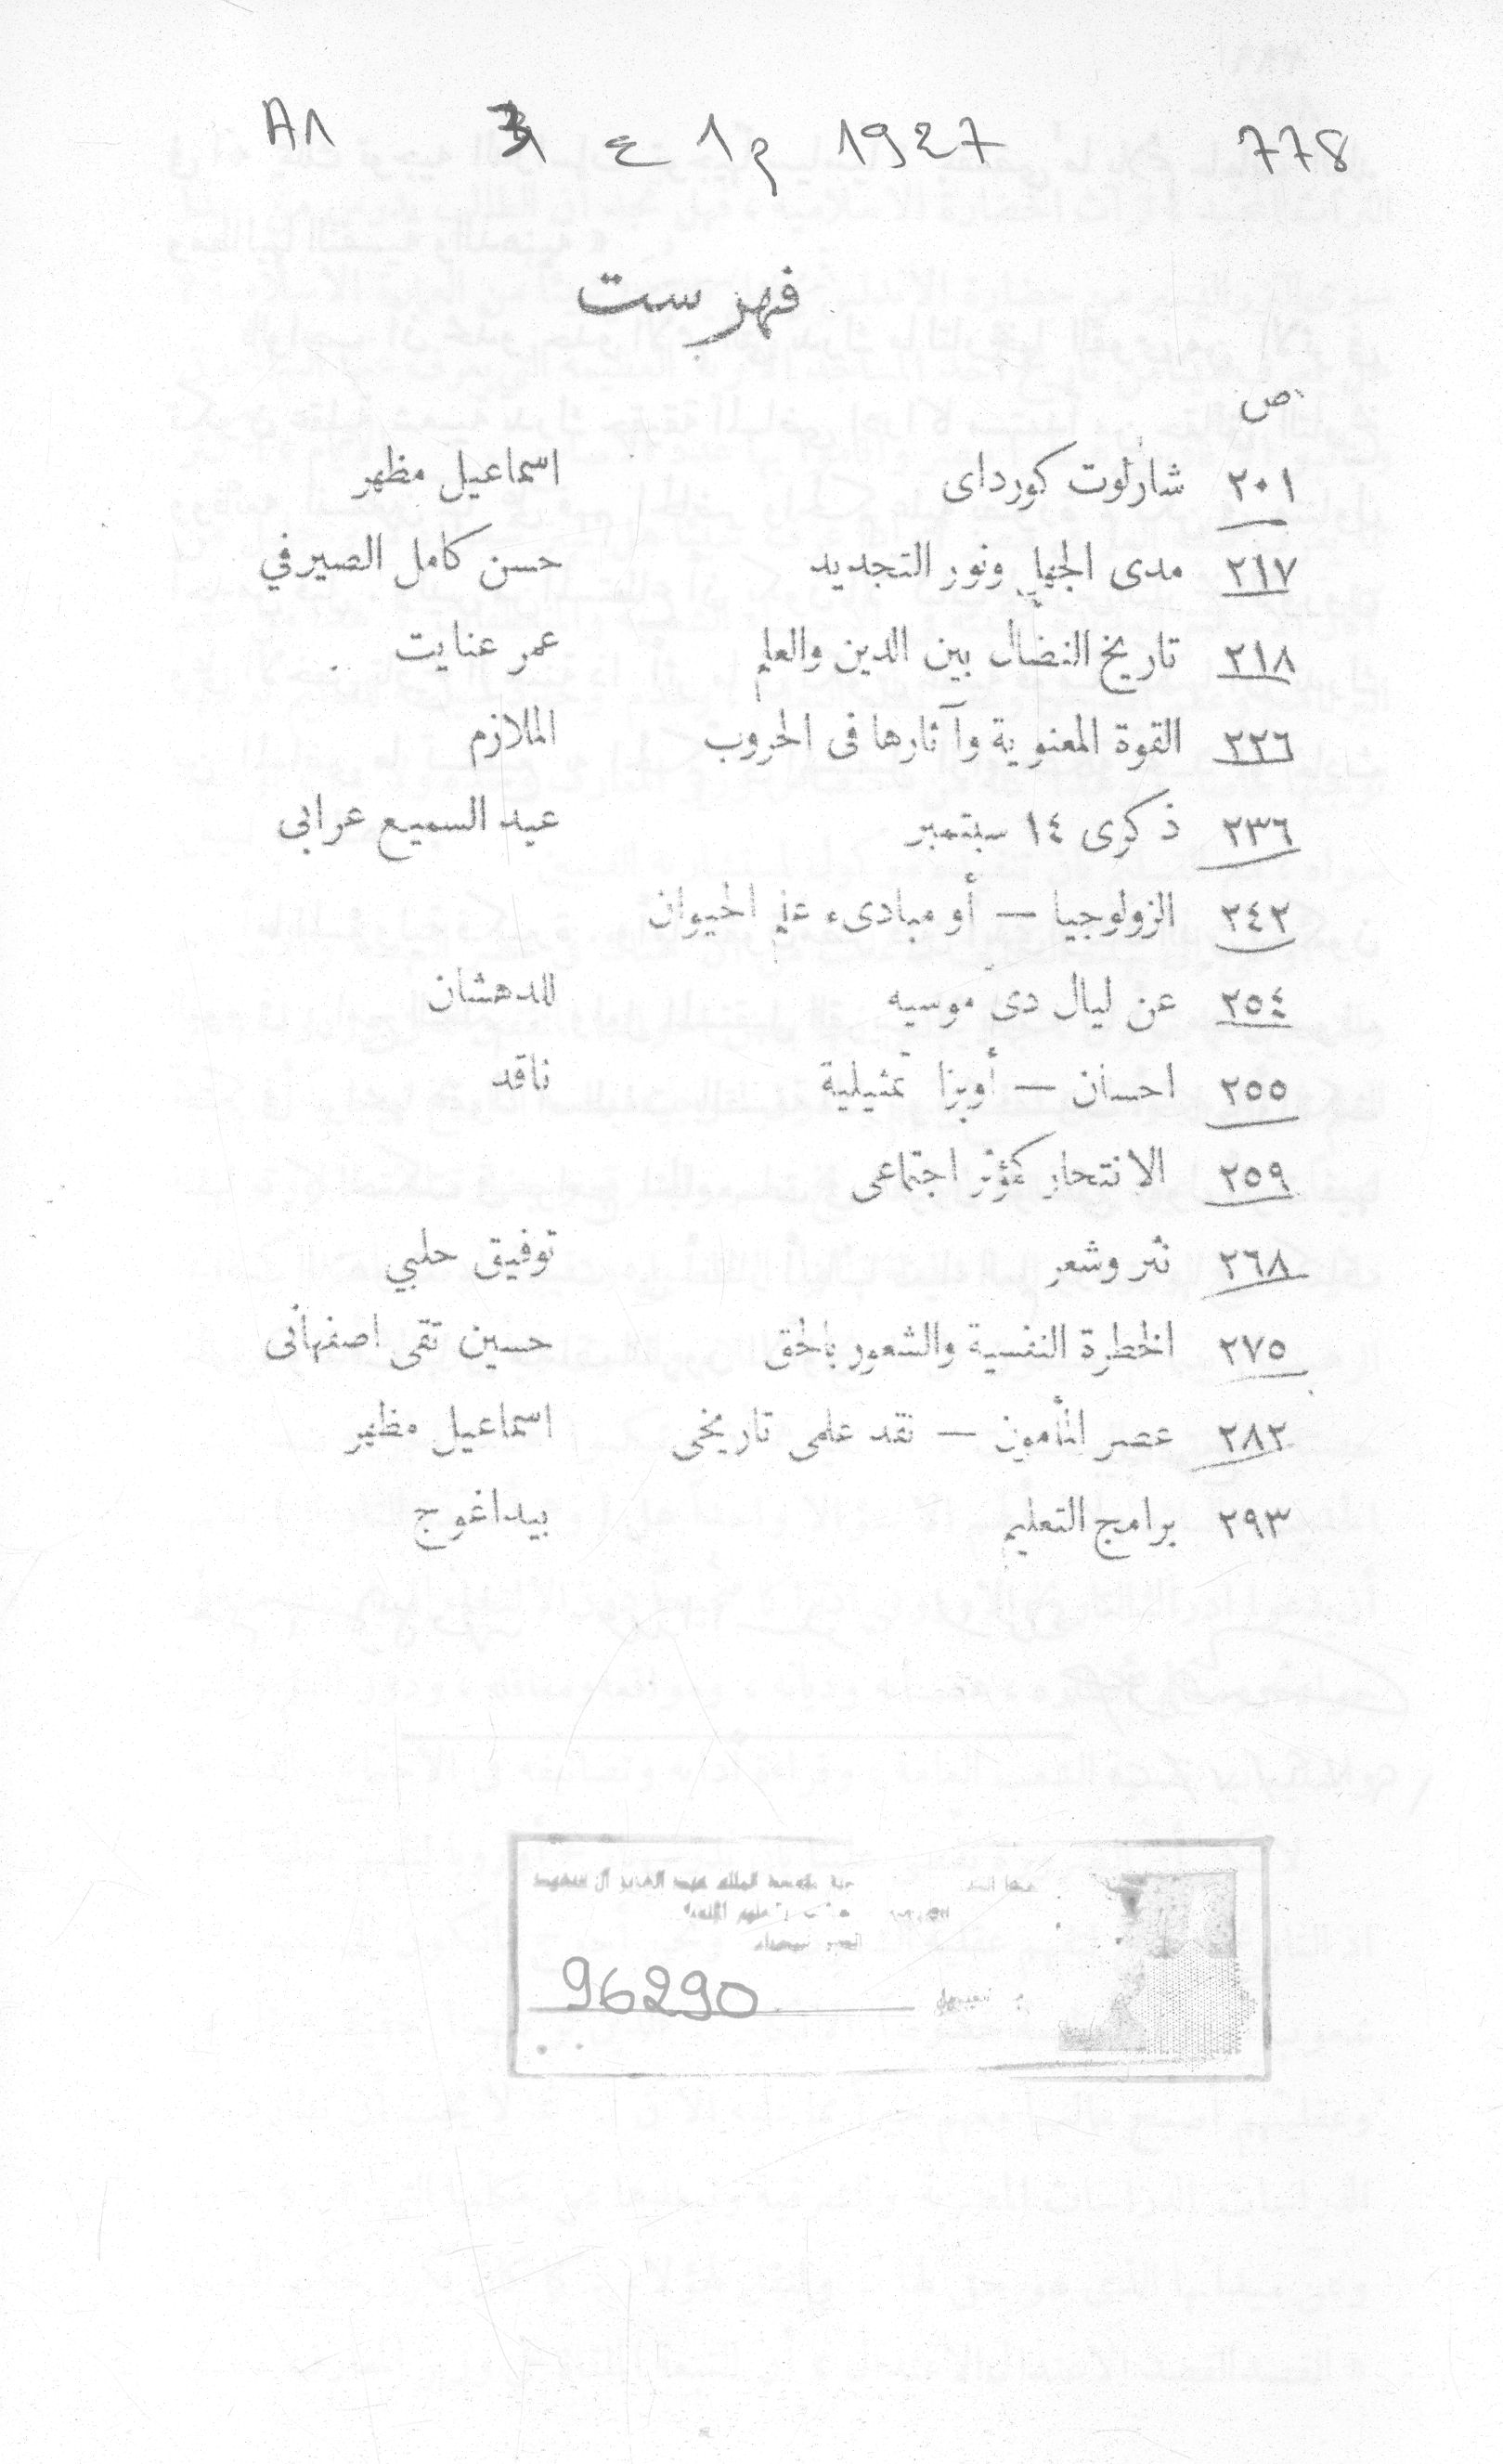 778 1927 م 1 ع
فهرست
ص
٢٠١ شارلوت كورداى اسماعيل مظهر
٢١٧ مدى الجهل ونور التجديد حسن كامل الصيرفي
٢١٨ تاريخ النضال بين الدين والعلم عمر عنايت
٢٢٦ القوة المعنوية وآثارها فى الحروب الملازم
٢٣٦ ذكرى ١٤ سبتمبر عبد السميع عرابى
٢٤٢ الزولوجيا — أو مبادىء علم الحيوان
٢٥٤ عن ليال دى موسيه للدهشان
٢٥٥ احسان — أوبرا تمثيلية ناقد
٢٥٩ الانتحار كمؤثر اجتماعى
٢٦٨ نثر وشعر توفيق حلبي
٢٧٥ الخطرة النفسية والشعور بالحق حسين تقى اصفهانى
٢٨٢ عصر المأمون — نقد علمى تاريخى اسماعيل مظهر
٢٩٣ برامج التعليم بيداغوج
الملك عبد العزيز آل سعود
96290